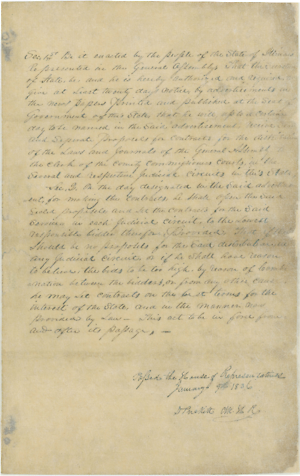 Sec. 1st Be it enacted by the people of the State of Illinois
represented in the General Assembly That the Secretary
of State be, and he is hereby authorized and required to
give at least twenty days notice by advertisements in
the news papers printed and published at the Seat of
Government of this State that he will upon a certain
day to be named in the said advertisement, receive
and separate proposals for contracts for the distribution
of the Laws and Journals of the General Assembly
the Clerk of the County Commissioners courts, in the
several and respective judicial circuits in this State
Sec. 2. On the day designated in the said
for the
Sealed proposals and let the contracts for the said
in each judicial circuit, to the lowest
responsible bidder therefor, Provided, That if there
should be no proposals for the said distribution in
any judicial circuit or if he shall have reason
to believe the bids to be too high, by reason of combi-
nation between the bidders, or from any other cause,
he may let contracts on the best terms for the
interest of the State, and in the manner now
provided by Law. This act to be in force from
and after its passage,
Passed the House of Representatives
January 9th 1836
D Prickett Clk H. R.